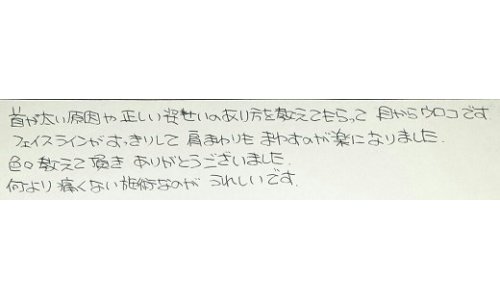 首が太い原因や正しい姿せいのあり方を教えてもらって 目からウロコです
フェイスラインがすっきりして 肩まわりも まわすのが楽になりました.
色々教えて頂き ありがとうございました.
何より痛くない施術なのが うれしいです.